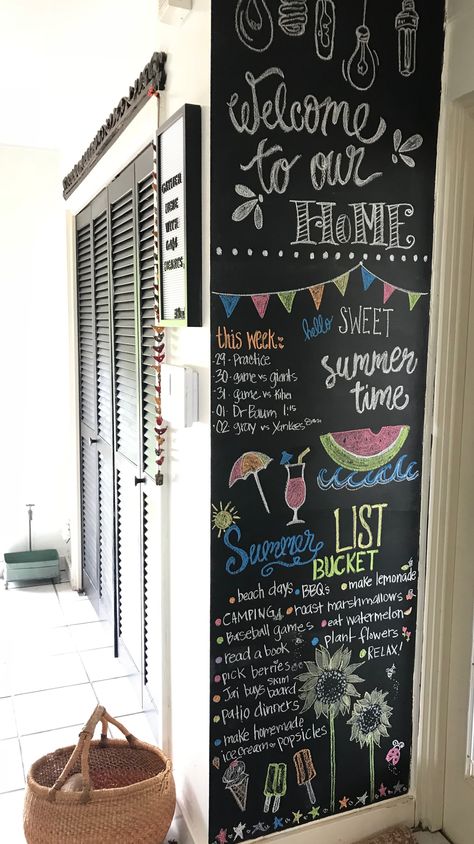 Welcome
to our
HOME
GATHER
HERE
WITH
this week:
29 - Practice
30 - game vs giants
31 - game vs Kiha
01 - Dr Baum 1:15
02 - gray vs Yankees
hello SWEET
summer
time
Summer LIST
BUCKET
beach days • BBQs • make lemonade
• CAMPING • roast marshmallows
• Baseball games • eat watermelon
• read a book • plant flowers
• pick berries • RELAX!
• Jori buys skim board
• patio dinners
• make homemade
icecream or popsicles